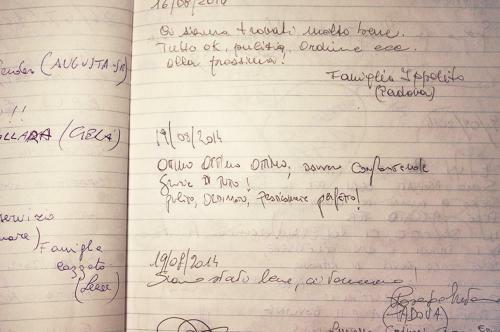 ender (AUGUSTA-SR)
!!
OLLARA (GELA)
servizio
nare)
Famiglia
cazzato
(Lecce)
16/08/2014
Ci siamo trovati molto bene.
Tutto ok, pulizia, ordine ecc.
alla prossima!
Famiglia Ippolito
(Padova)
19/08/2014
Ottimo ottimo ottimo, confortevole
Grazie di tutto!
Pulito, ordinato, perfetto!
19/08/2014
Siamo stati bene, ci torneremo!
(PADOVA)